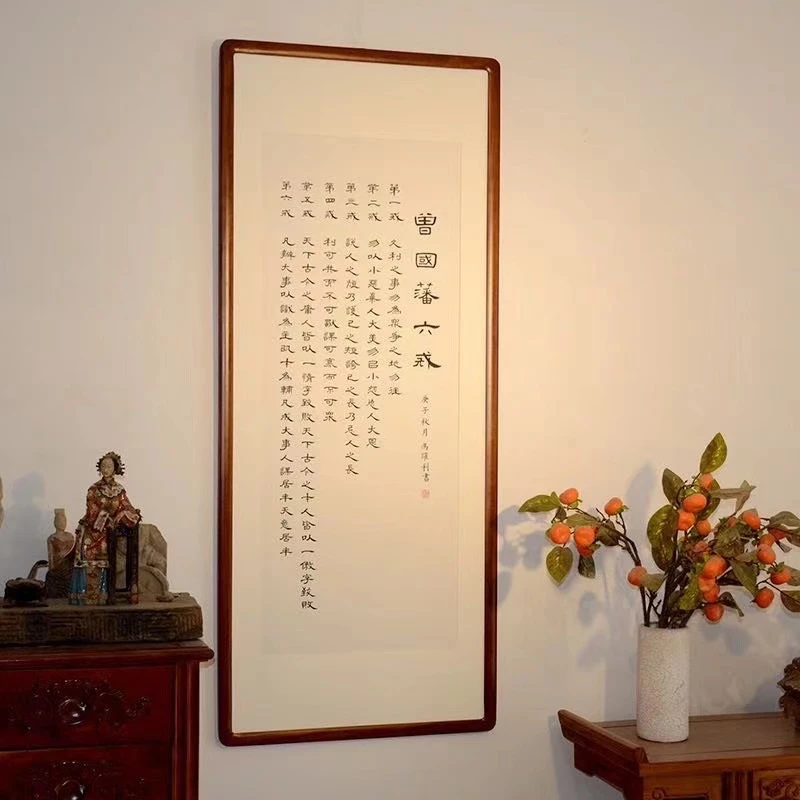 曾國藩六戒
庚子秋月馮利書
第一戒 久利之事勿為衆爭之地勿往
第二戒 勿以小惡棄人大美勿以小怨忘人大恩
第三戒 說人之短乃護己之短誇己之長乃忌人之長
第四戒 利可共而不可獨謀可寡而不可衆
第五戒 天下古今之庸人皆以一惰字致敗天下古今之才人皆以一傲字致敗
第六戒 凡辦大事以識為主以才為輔凡成大事人謀居半天意居半